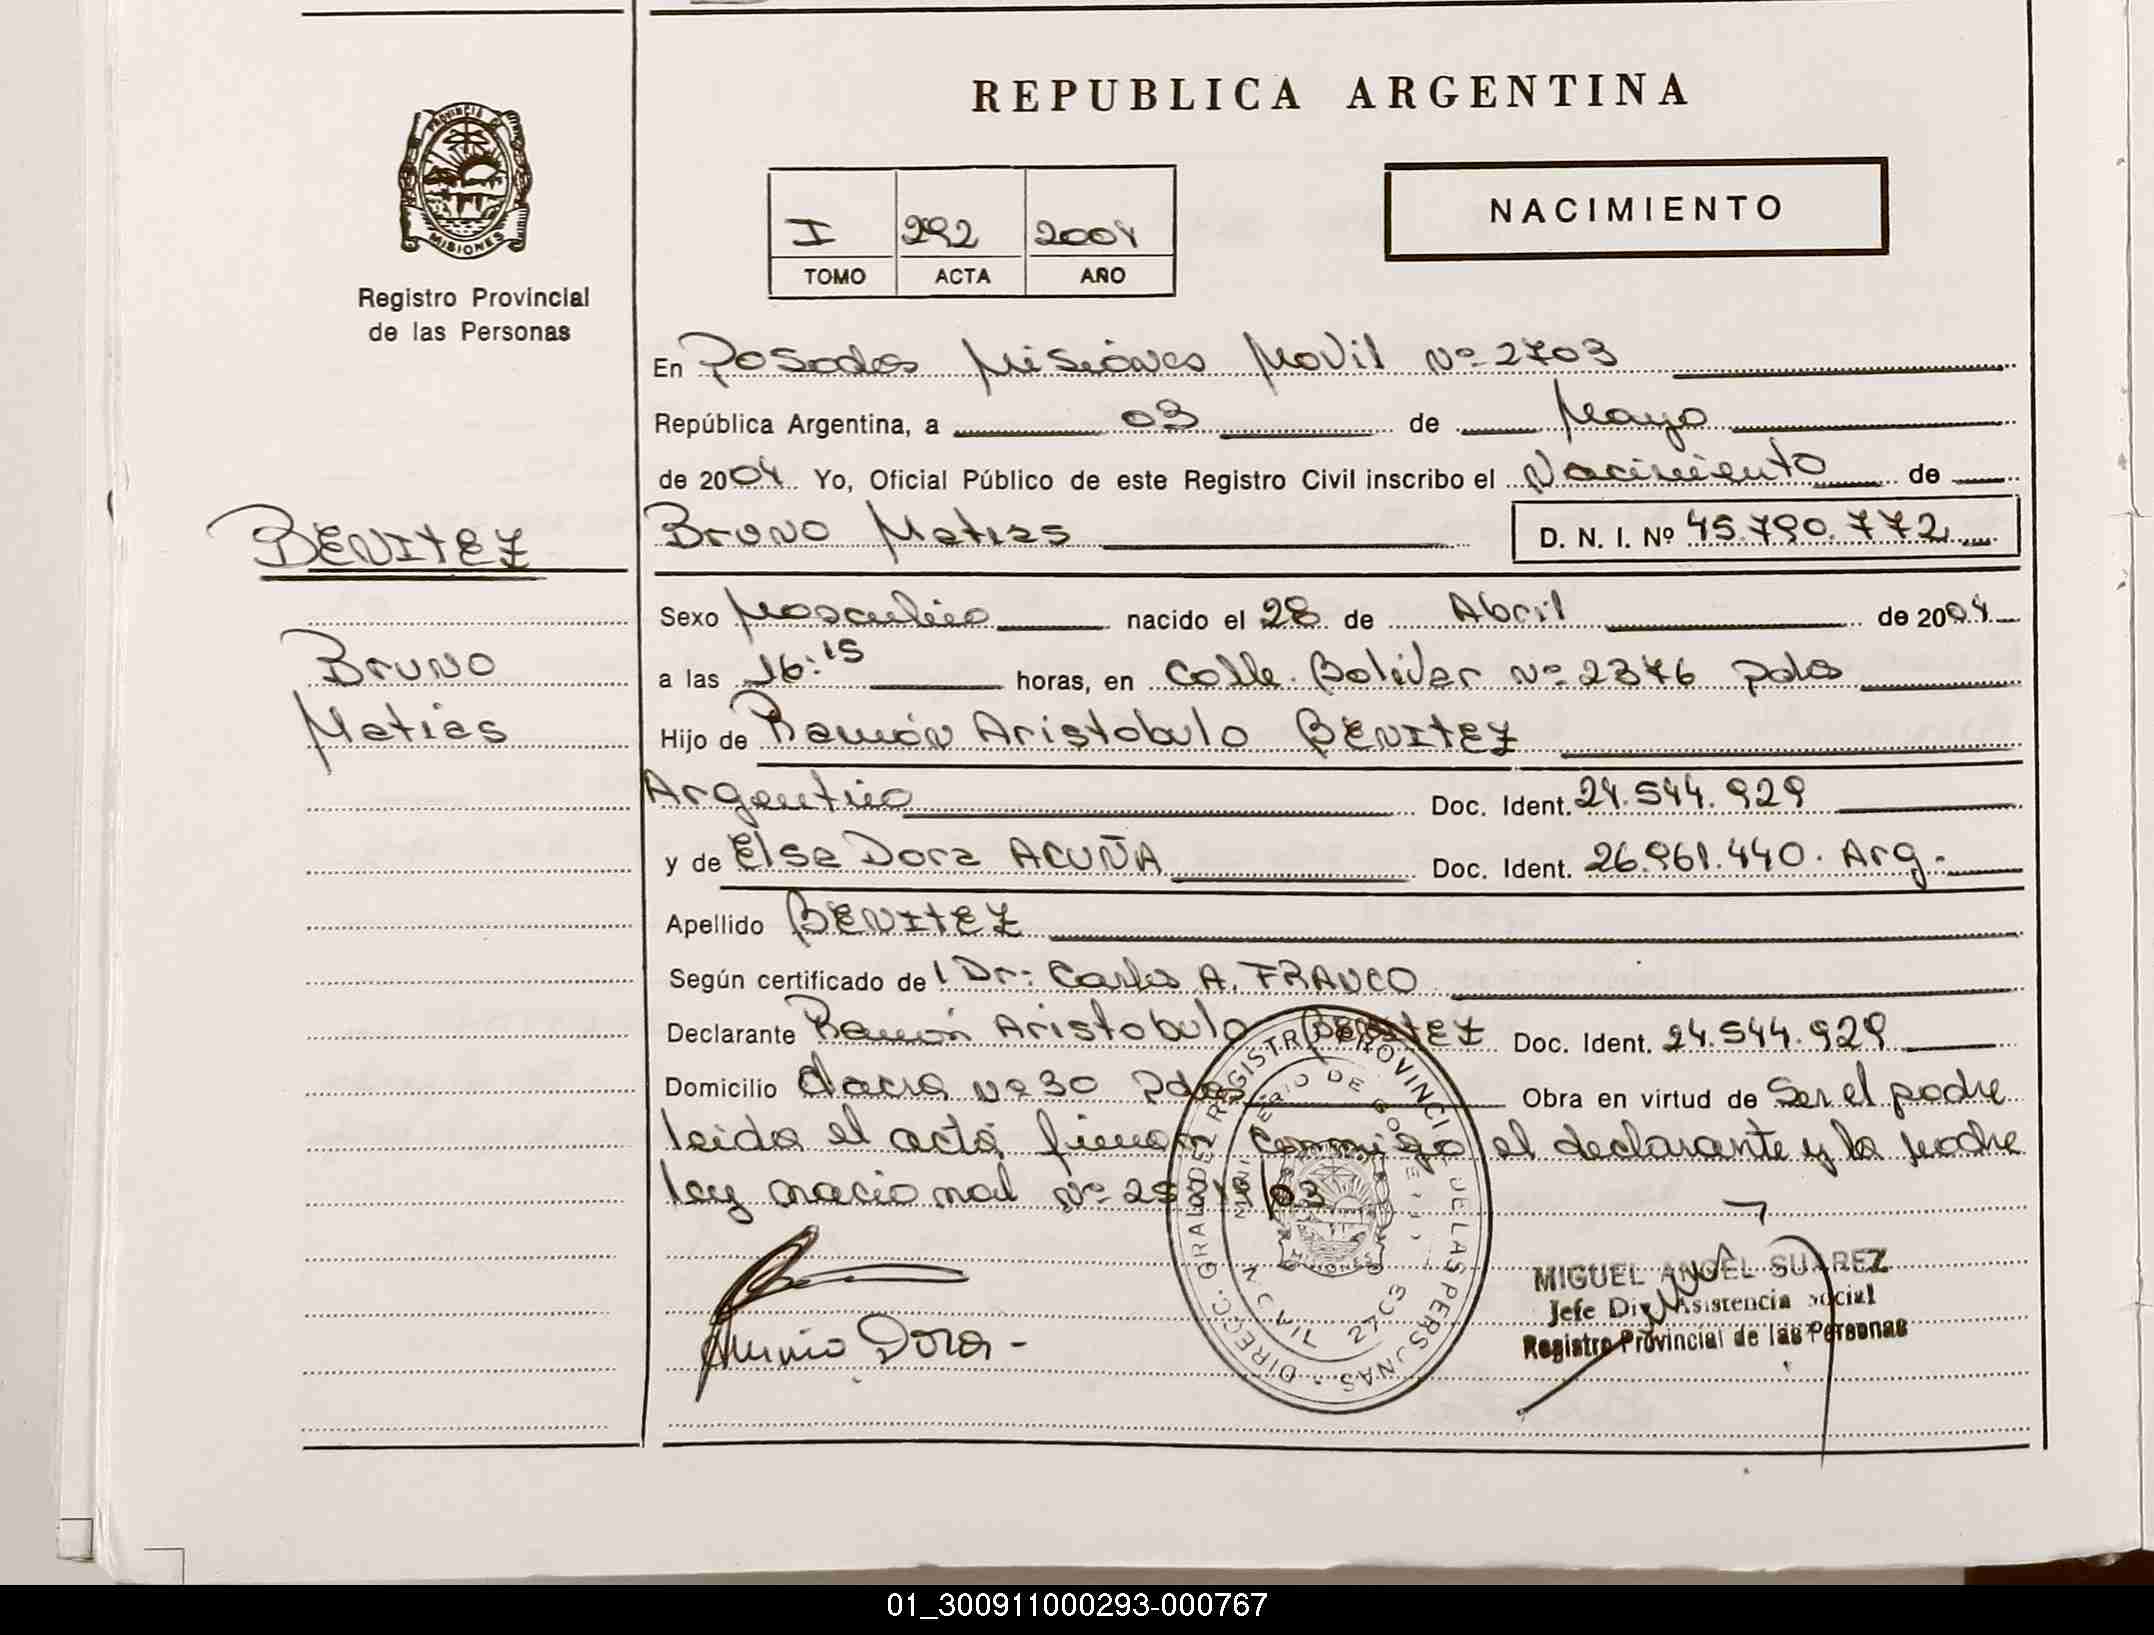 REPUBLICA ARGENTINA
PROVINCIA DE
MISIONES
Registro Provincial
de las Personas
NACIMIENTO
I 292 2004
TOMO ACTA AÑO
En Posadas Misiones Movil Nº 2703
República Argentina, a 03 de Mayo
de 2004 Yo, Oficial Público de este Registro Civil inscribo el Nacimiento de
BENITEZ
Bruno Matias D. N. I. Nº 45.790.772
Sexo Masculino nacido el 28 de Abril de 2004
Bruno
Matias
a las 16:15 horas, en Calle Bolivar Nº 2376 pdas
Hijo de Ramón Aristobulo BENITEZ
Argentino Doc. Ident. 24.544.929
y de Elsa Dora ACUÑA Doc. Ident. 26.961.440. Arg.
Apellido BENITEZ
Según certificado de l Dr: Carlos A. FRANCO
Declarante Ramón Aristobulo BENITEZ Doc. Ident. 24.544.929
Domicilio chacra nº 30 Pdas Obra en virtud de Ser el padre
leida el acta firman conmigo el declarante y la madre
ley nacional Nº
DIRECC. GRAL. DEL REGISTRO PROVINCIAL DE LAS PERSONAS
MINISTERIO DE GOBIERNO
MISIONES
CIVIL 2703
Dora
MIGUEL ANGEL SUAREZ
Jefe Div. Asistencia Social
Registro Provincial de las Personas
01_300911000293-000767